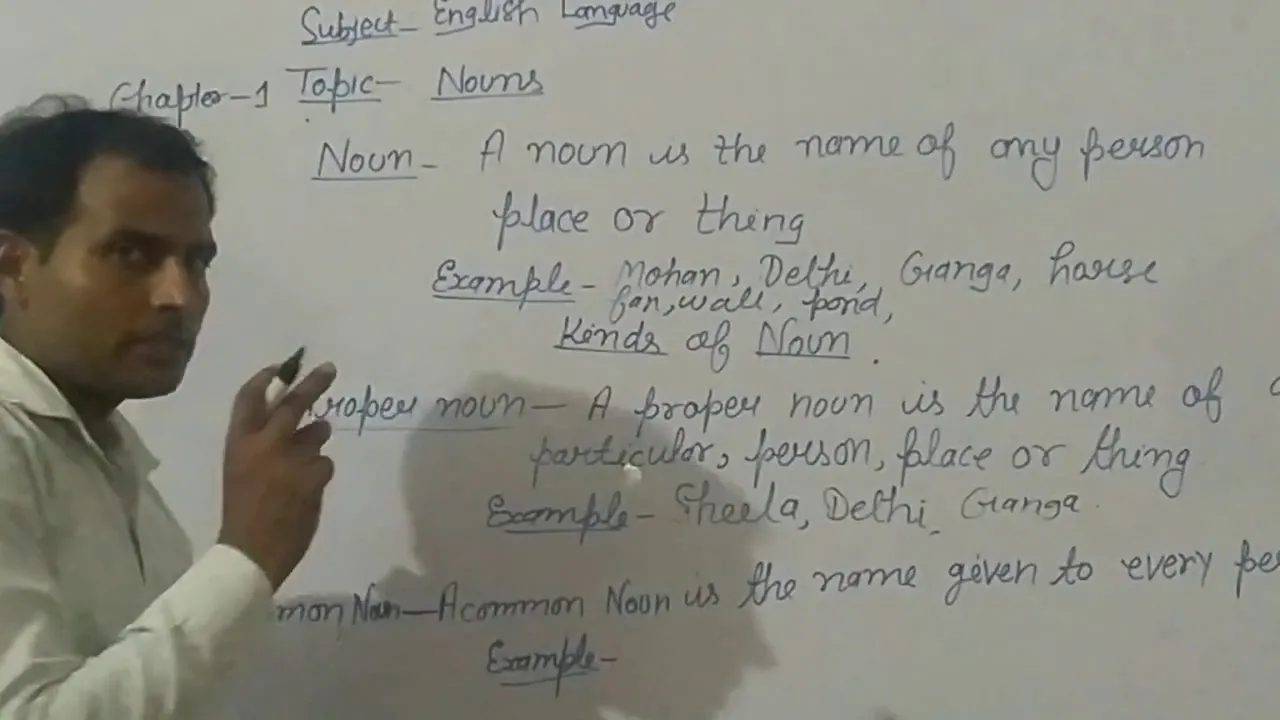 Subject- English Language
Chapter-1 Topic- Nouns
Noun- A noun is the name of any person
place or thing
Example- Mohan, Delhi, Ganga, house
fan, wall, pond,
Kinds of Noun.
roper noun- A proper noun is the name of
particular, person, place or thing
Example- Sheela, Delhi, Ganga.
mon Noun- A common Noun is the name given to every pe
Example-